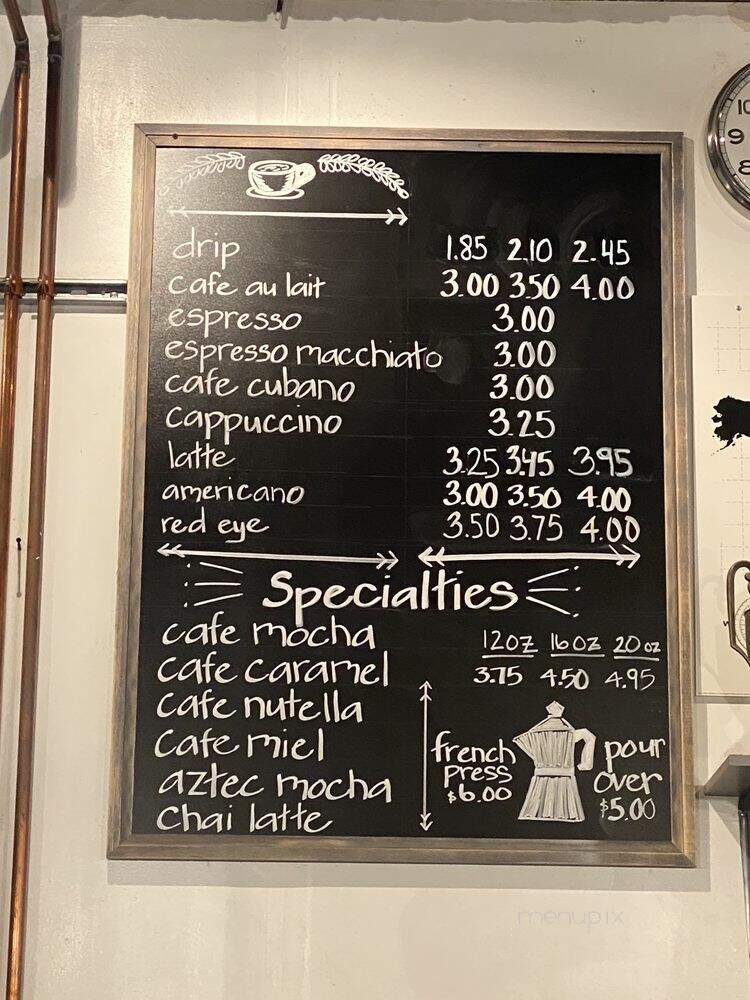 drip 1.85 2.10 2.45
cafe au lait 3.00 3.50 4.00
espresso 3.00
espresso macchiato 3.00
cafe cubano 3.00
cappuccino 3.25
latte 3.25 3.45 3.95
americano 3.00 3.50 4.00
red eye 3.50 3.75 4.00
Specialties
cafe mocha
cafe caramel
cafe nutella
cafe miel
aztec mocha
chai latte
12oz 16oz 20oz
3.75 4.50 4.95
french
press
$6.00
pour
over
$5.00
10
9
8
menupix